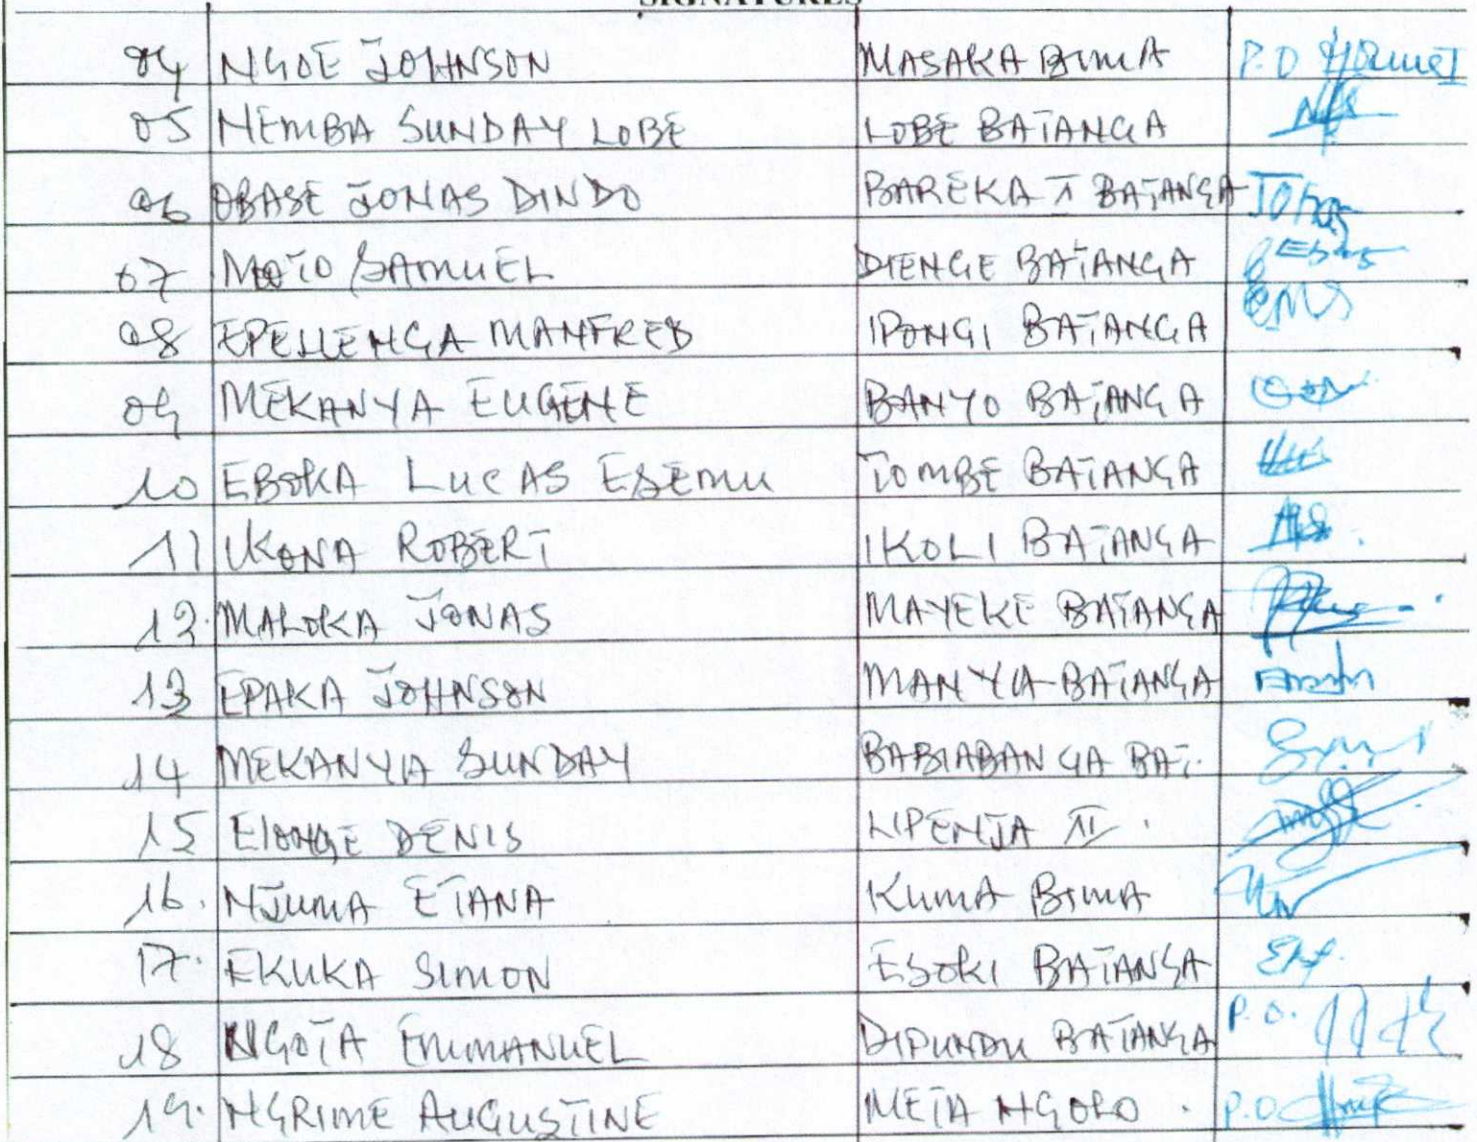 SIGNATURES
04 NGOE JOHNSON MASAKA BIMA P.O
05 NEMBA SUNDAY LOBE LOBE BATANGA
06 OBASE JONAS DINDO BAREKA II BATANGA
07 MOTO SAMUEL DIENGE BATANGA
08 EPELLENGA MANFRED IPONGI BATANGA
09 MEKANYA EUGENE BANYO BATANGA
10 EBOKA LUCAS ESEMU TOMBE BATANGA
11 IKONA ROBERT IKOLI BATANGA
12. MALOKA JONAS MAYEKE BATANGA
13 EPAKA JOHNSON MANYIA BATANGA
14 MEKANYIA SUNDAY BABIABANGA BAT.
15 ELONGE DENIS LIPENJA II.
16. NJUMA ETANA KUMA BIMA
17. EKUKA SIMON ESOKI BATANGA
18 NGOTA EMMANUEL DIPUNDU BATANGA P.O.
19. NGRIME AUGUSTINE META NGOLO. P.O